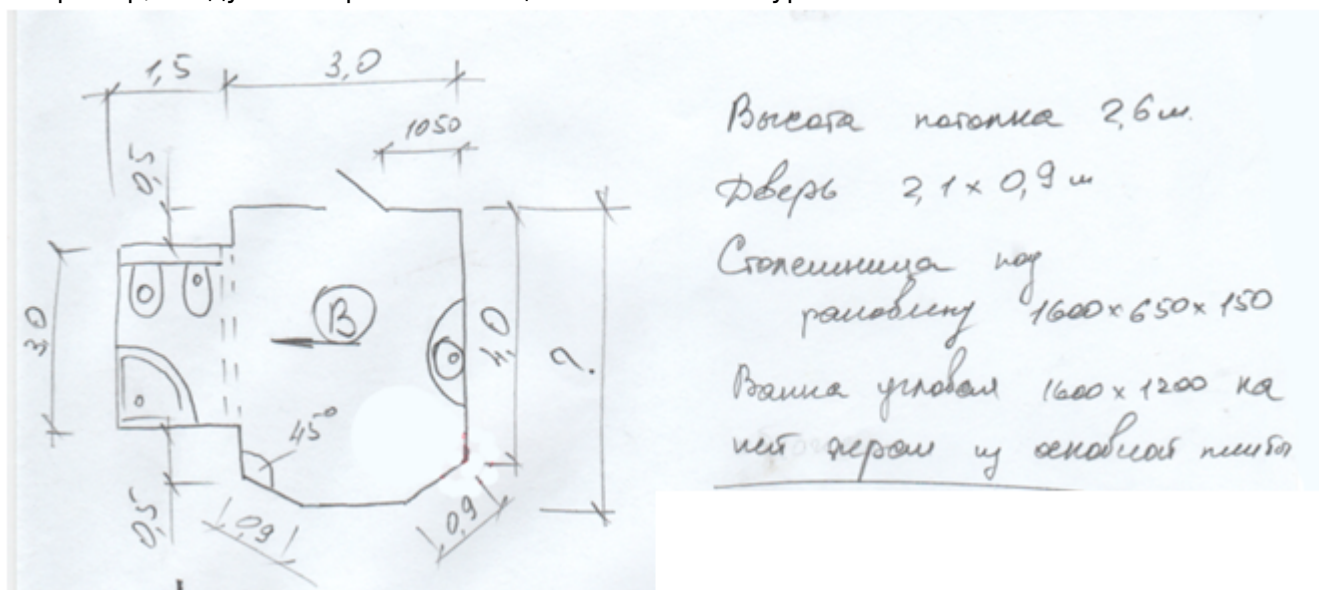 1,5
3,0
1050
0,5
3,0
В
4,0
?
45°
0,5
0,9
0,9
Высота потолка 2,6 м.
Дверь 2,1 х 0,9 м
Столешница под
раковину 1600 х 650 х 150
Ванна угловая 1600 х 1200 на
ней экран из основной плиты